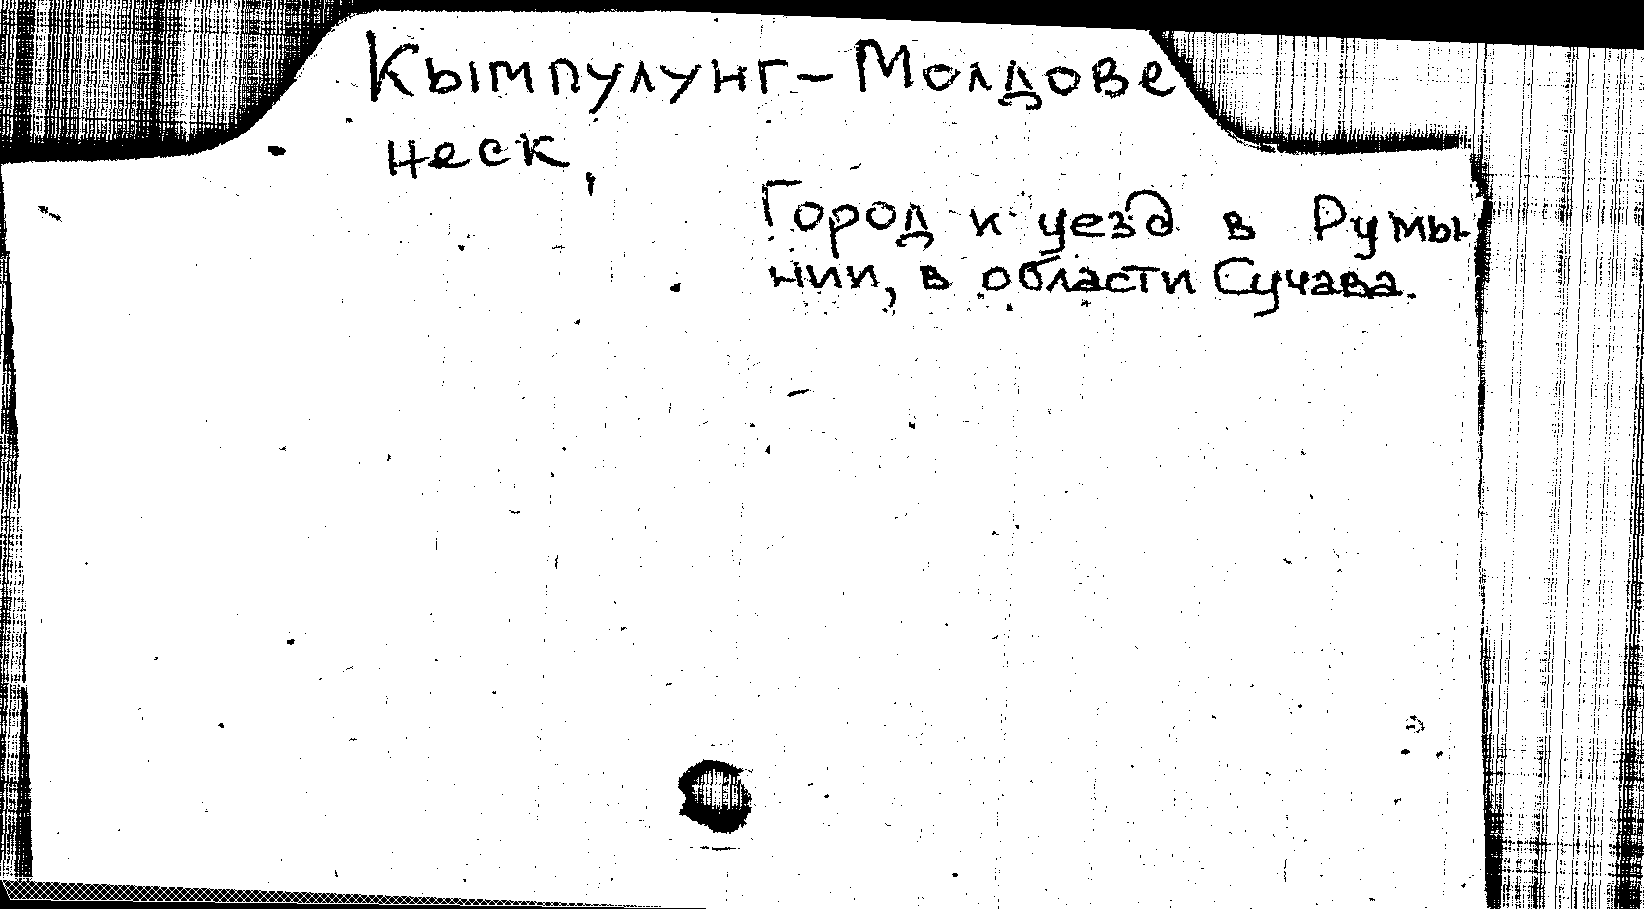 Кымпулунг-Молдове
неск,
Город и уезд в Румы-
нии, в области Сучава.